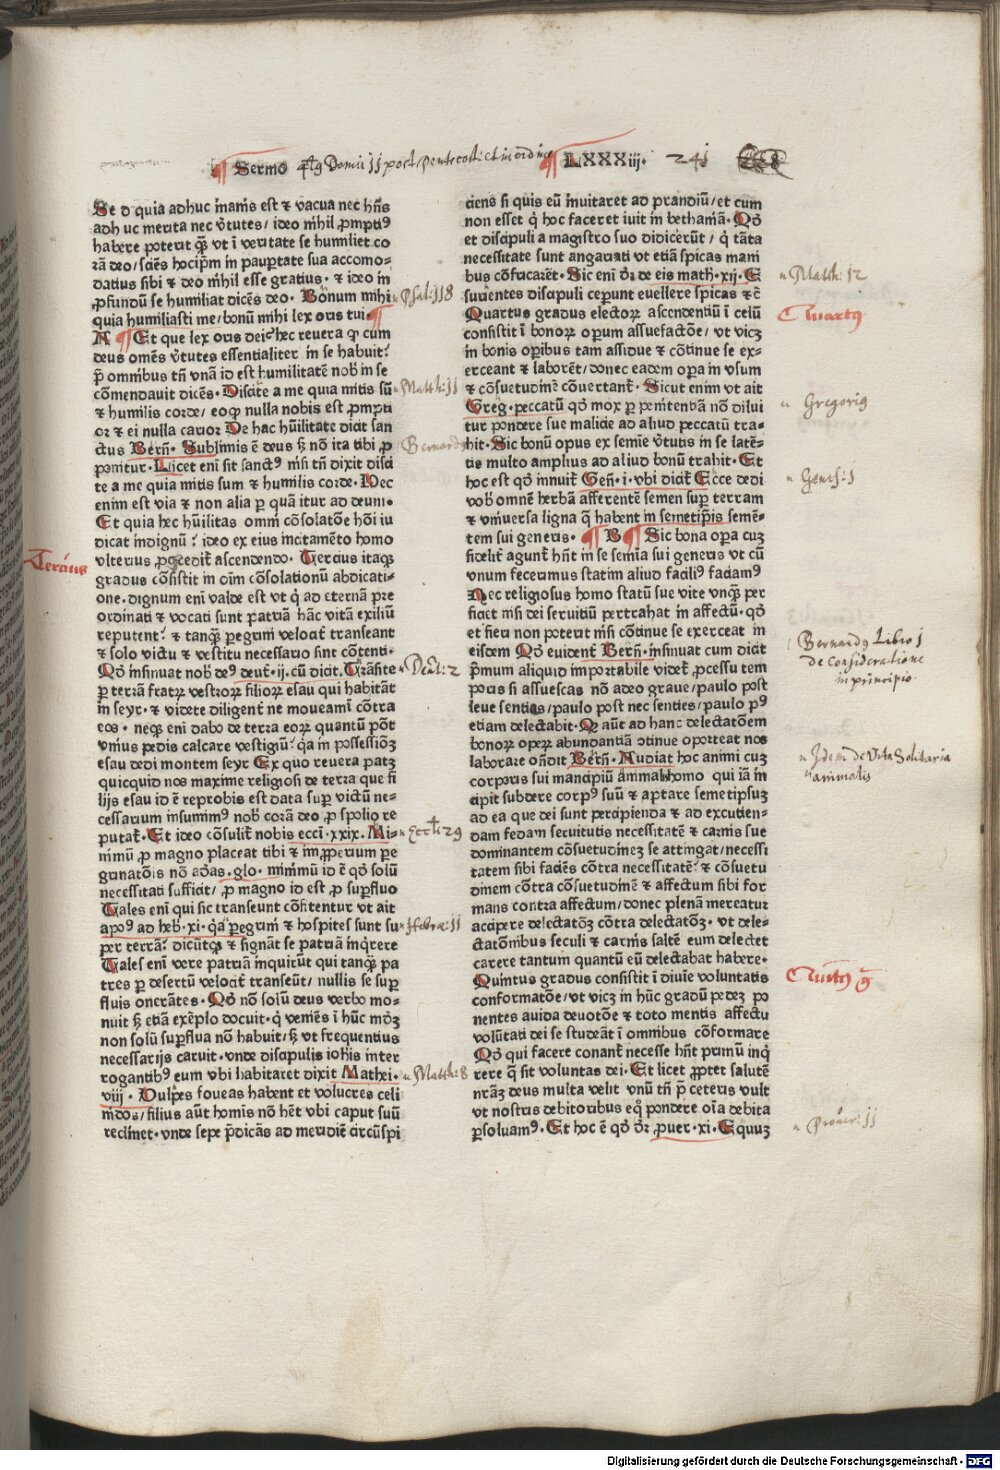 Sermo 4tus Domii 11 post pentecost: et in ordine LXXXiiij. 241
Se d quia adhuc inanis est ⁊ vacua nec hn̄s
adh uc merita nec v̄tutes / ideo nihil ꝓmpti⁹
habere poterit qꝫ̄ vt ī veritate se humiliet co
rā deo / sciēs hocip̄m in paup̄tate sua accomo-
datius sibi ⁊ deo nihil esse gratius. ⁊ ideo in
ꝓfundū se humiliat dicēs deo. Bonum mihi
quia humiliasti me / bonū mihi lex oris tui
A Et que lex oris dei? hec reuera ꝙ cum
deus omēs v̄tutes essentialiter in se habuit?
p̄ omnibus tn̄ vnā id est humilitatē nob̄ in se
cōmendauit dicēs. Discite a me quia mitis sū
⁊ humilis corde / eoꝙ nulla nobis est ꝓmpti
or ⁊ ei nulla carior De hac hūilitate dicit san
ctus Bern̄. Sublimis ē deus sꝫ nō ita tibi ꝓ
ponitur. Licet eni sit sanct⁹ nisi tn̄ dixit disci
te a me quia mitis sum ⁊ humilis corde. Hec
enim est via ⁊ non alia p̲ quā itur ad deum.
Et quia hec hūilitas omni cōsolatōe hōi iu
dicat indignū? ideo ex eius incitamēto homo
vlterius ꝓgredit̄ ascendendo. Tercius itaqꝫ
gradus cōsistit in oīm cōsolationū abdicati-
one. dignum eni valde est vt q̄ ad eternā pre
ordinati ⁊ vocati sunt patriā hāc vitā exiliū
reputent? ⁊ tanqꝫ̄ peregrini velocit̄ transeant
⁊ solo victu ⁊ vestitu necessario sint cōtenti.
Qō insinuat nob̄ de⁹ deut̄.ij.cū dicit. Trāsite
per terrā fratrꝝ vestroꝝ filioꝝ esau qui habitāt
in seyr. ⁊ videte diligent̄ ne moueami cōtra
eos. neqꝫ eni dabo de terra eoꝝ quantū pōt
vnius pedis calcare vestigiū? q̄a in possessiōꝫ
esau dedi montem seyr Ex quo reuera patꝫ
quicquid nos maxime religiosi de terra que fi
lijs esau id ē reprobis est data sup̲ victū ne-
cessarium insumim⁹ nob̄ corā deo ꝓ spolio re
putat̄. Et ideo cōsulit̄ nobis ecci.xxix. Mi-
nimū ꝓ magno placeat tibi ⁊ imꝓperium pe
grinatōis nō audias. glo. minimū id ē qd̄ solū
necessitati sufficit / ꝓ magno id est ꝓ sup̲fluo
Tales eni qui sic transeunt cōfitentur vt ait
apo⁹ ad heb̄.xi. q̄a p̲egrini ⁊ hospites sunt su
per terrā? dicūtqꝫ ⁊ signāt se patriā inq̄rere
Tales eni vere patriā inquirūt qui tanqꝫ pa
tres p̲ desertū velocit̄ transeūt / nullis se sup̲
fluis onerātes. Qō nō solū deus verbo mo-
nuit sꝫ etiā exēplo docuit. q̄ veniēs ī hūc mūdꝫ
non solū sup̲flua nō habuit / sꝫ vt frequentius
necessarijs caruit. vnde discipulis iohis inter
rogantib⁹ eum vbi habitaret dixit Mathei.
viij. Vulpes foueas habent et volucres celi
nidos / filius aūt homis nō hēt vbi caput suū
reclinet. vnde sepe p̄dicās ad meridiē circūspi
ciens si quis eū inuitaret ad prandiū / et cum
non esset q̄ hoc faceret iuit in bethaniā. Qō
et discipuli a magistro suo didicerūt / q̄ tāta
necessitate sunt angariati vt etiā spicas mani
bus cōfricarēt. Sic eni dr̄ de eis math.xij. E
surientes discipuli ceperunt euellere spicas ⁊ c̄
Quartus gradus electoꝝ ascendentiū ī celū
consistit ī bonoꝝ operum assuefactōe / vt vicꝫ
in bonis op̲ibus tam assidue ⁊ cōtinue se ex-
erceant ⁊ laborēt / donec eadem op̲a in vsum
⁊ cōsuetudinē cōuertant̄. Sicut enim vt ait
Greḡ. peccatū qō mox p̲ penitentiā nō dilui
tur pondere sue malicie ad aliud peccatū tra-
hit. Sic bonū opus ex semine v̄tutis in se latē-
tis multo amplius ad aliud bonū trahit. Et
hoc est qō innuit̄ Gen̄.i. vbi dicit̄ Ecce dedi
vob̄ omnē herbā afferentē semen sup̲ terram
⁊ vniuersa ligna q̄ habent in semetip̄is semē-
tem sui generis. B Sic bona op̲a cuꝫ
fidelit̄ agunt̄ hn̄t in se semīa sui generis vt cū
vnum fecerimus statim aliud facili⁹ faciam⁹
Nec religiosus homo statū sue vite vnqꝫ̄ per
ficiet nisi dei seruitiū pertrahat in affectū. qō
et fieri non poterit nisi cōtinue se exerceat in
eisdem Qō euident̄ Bern̄. insinuat cum dicit
p̄mum aliquid importabile videt̄ ꝓcessu tem
poris si assuescas nō adeo graue / paulo post
leue senties / paulo post nec senties / paulo p⁹
etiam delectabit. Qꝙ aūt ad hanc delectatōem
bonoꝝ opeꝝ abundantiā ↄtinue oporteat nos
laborare on̄dit Bern̄. Audiat hoc animi cuꝫ
corporis sui mancipiū animal homo qui iā in
cipit subdere corp⁹ suū ⁊ aptare semetipsuꝫ
ad ea que dei sunt percipienda ⁊ ad excutien-
dam fedam seruitutis necessitatē ⁊ carnis sue
dominantem cōsuetudineꝫ se attingat / necessi
tatem sibi faciēs cōtra necessitatē? ⁊ cōsuetu
dinem cōtra cōsuetudinē ⁊ affectum sibi for
mans contra affectum / donec plenā mereatur
accipere delectatōꝫ cōtra delectatōꝫ. vt dele-
ctatōnibus seculi ⁊ carnis saltē eum delectet
carere tantum quantū eū delectabat habere.
Quintus gradus consistit ī diuīe voluntatis
conformatōe / vt vicꝫ in hūc gradū pedeꝫ po
nentes auida deuotōe ⁊ toto mentis affectu
volūtati dei se studeāt ī omnibus cōformare
Qō qui facere conant̄ necesse hn̄t primū inq̄
rere q̄ sit voluntas dei. Et licet ꝓpter salutē
nrāꝫ deus multa velit vnū tn̄ p̄ ceteris vult
vt nostris debitoribus eq̄ pondere oīa debita
p̲soluam⁹. Et hoc ē qō dr̄ ꝓuer.xi. Equuꝫ
Psal: 118
Matth: 11
Bernardus
Tercius
Deut: 2
Eccli: 29
Hebrae: 11
Matth: 8
Matth: 12
Quartus
Gregorius
Genes: 1
Bernardus Libro 1
de Consideratione
in principio.
Idem de Vita Solitaria
animalis
Quintus G
Prouer: 11
Digitalisierung gefördert durch die Deutsche Forschungsgemeinschaft - DFG